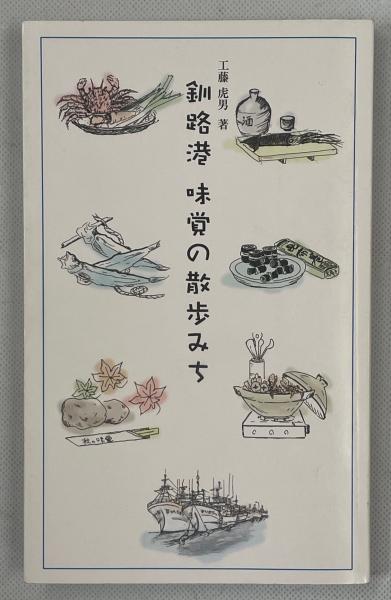 工藤 虎男 著
釧路港 味覚の散歩みち
酒
秋の味覚